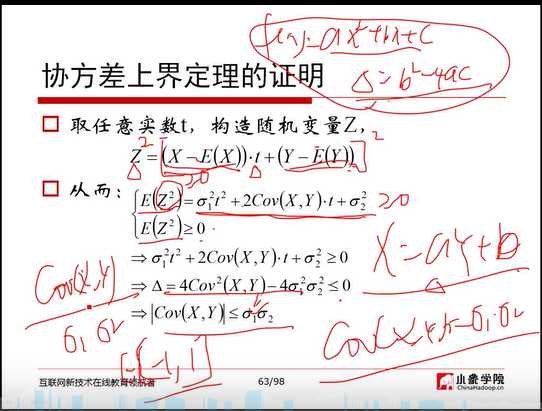 f(x)=ax²+bx+c
Δ=b²-4ac
协方差上界定理的证明
取任意实数t，构造随机变量Z，
Z=(X-E(X))·t+(Y-E(Y))
2
2
Δ
Δ
≥0
从而：
E(Z²)=σ₁²t²+2Cov(X,Y)·t+σ₂²
≥0
E(Z²)≥0
⇒σ₁²t²+2Cov(X,Y)·t+σ₂²≥0
X=aY+b
⇒Δ=4Cov²(X,Y)-4σ₁²σ₂²≤0
Cov(X,Y)
σ₁σ₂
⇒|Cov(X,Y)|≤σ₁σ₂
[-1,1]
互联网新技术在线教育领航者
63/98
小象学院
ChinaHadoop.cn